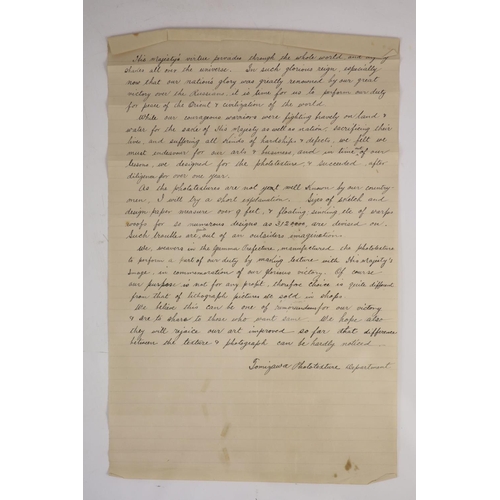 His Majesty's virtue pervades through the whole world, and
shines all over the universe. In such glorious reign, especially
now that our nation's glory was greatly renowned by our great
victory over the Russians, it is time for us to perform our duty
for peace of the Orient & civilization of the world.
While our courageous warriors were fighting bravely on land &
water for the sake of His Majesty as well as nation, sacrificing their
lives, and suffering all kinds of hardships & defects, we felt we
must endeavor for our arts & business, and in time of our
lessons, we designed for the phototexture, & succeeded after
diligence for over one year.
As the phototextures are not yet well known by our country-
men, I will try a short explanation. Size of sketch and
design paper measure over 9 feet, & floating, sinking, etc of warps
woofs for so numerous designs as 3120000, are devised on.
Such troubles are out of an outsiders imagination.
We, weavers in the Gumma Prefecture, manufactured the phototexture
to perform a part of our duty by making texture with His Majesty's
Image, in commemoration of our glorious victory. Of course
our purpose is not for any profit, therefore choice is quite different
from that of lithograph pictures sold in shops.
We belive this can be one of memorandums for our victory
& are to share to those who want same. We hope also
they will rejoice our art improved so far that difference
between the texture & photograph can be hardly noticed.
Tomizawa Phototexture department.